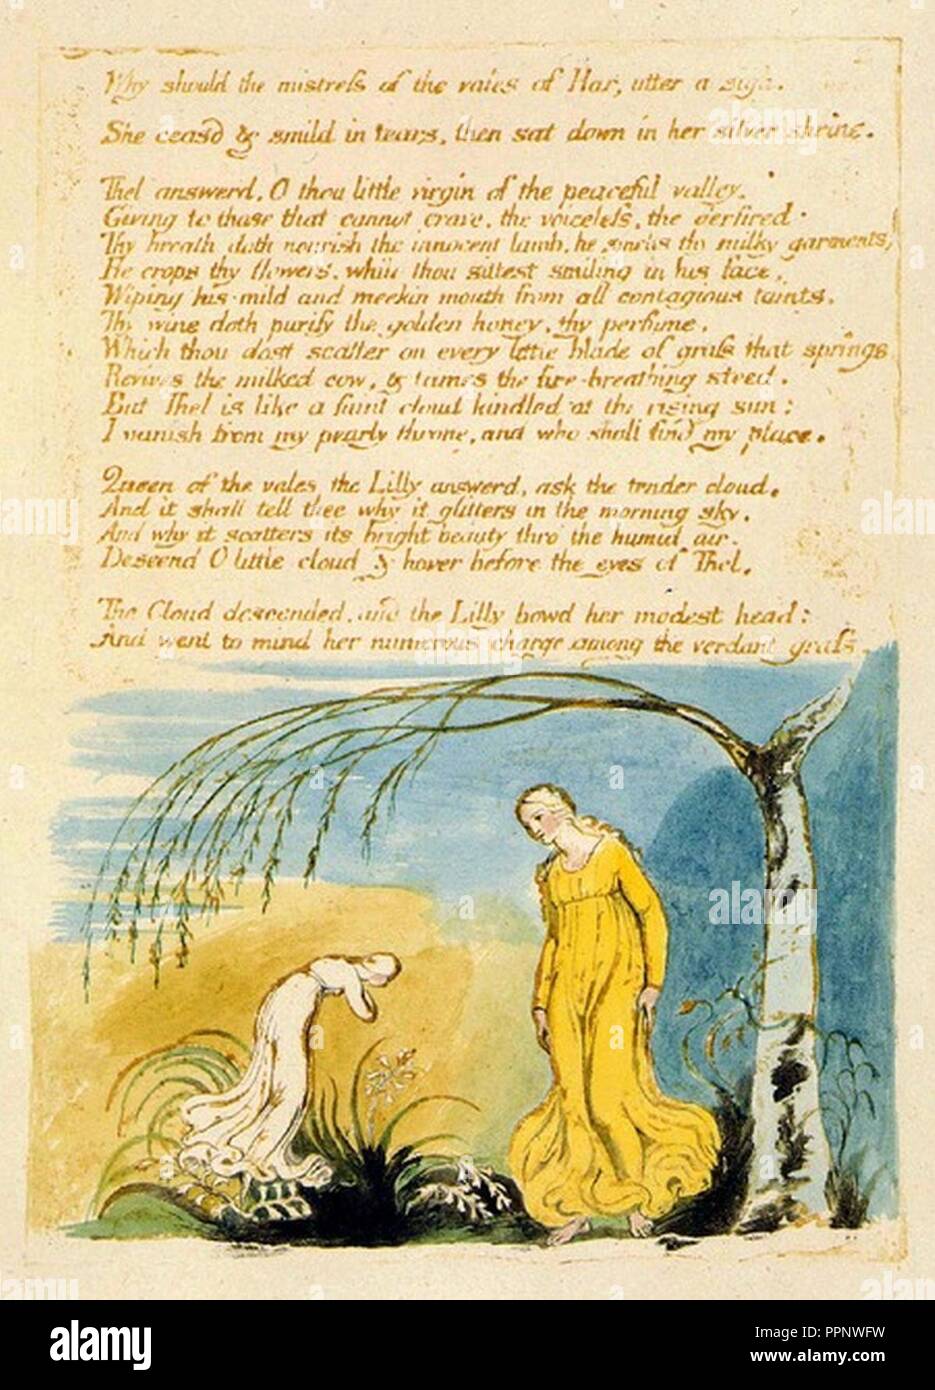 Why should the mistreſs of the vales of Har, utter a sigh.
She ceasd & smild in tears, then sat down in her silver shrine.
Thel answerd, O thou little virgin of the peaceful valley.
Giving to those that cannot crave, the voiceleſs, the
Thy breath doth nourish the innocent lamb, he smells thy milky garments,
He crops thy flowers, while thou sittest smiling in his face,
Wiping his mild and meekin mouth from all contagious taints.
Thy wine doth purify the golden honey, thy perfume,
Which thou dost scatter on every little blade of graſs that springs
Revives the milked cow, & tames the fire-breathing steed.
But Thel is like a faint cloud kindled at the rising sun:
I vanish from my pearly throne, and who shall find my place.
Queen of the vales the Lilly answerd, ask the tender cloud,
And it shall tell thee why it glitters in the morning sky,
And why it scatters its bright beauty thro the humid air.
Descend O little cloud & hover before the eyes of Thel.
The Cloud descended, and the Lilly bowd her modest head:
And went to mind her numerous charge among the verdant graſs.
alamy
Image ID: PPNWFW
www.alamy.com